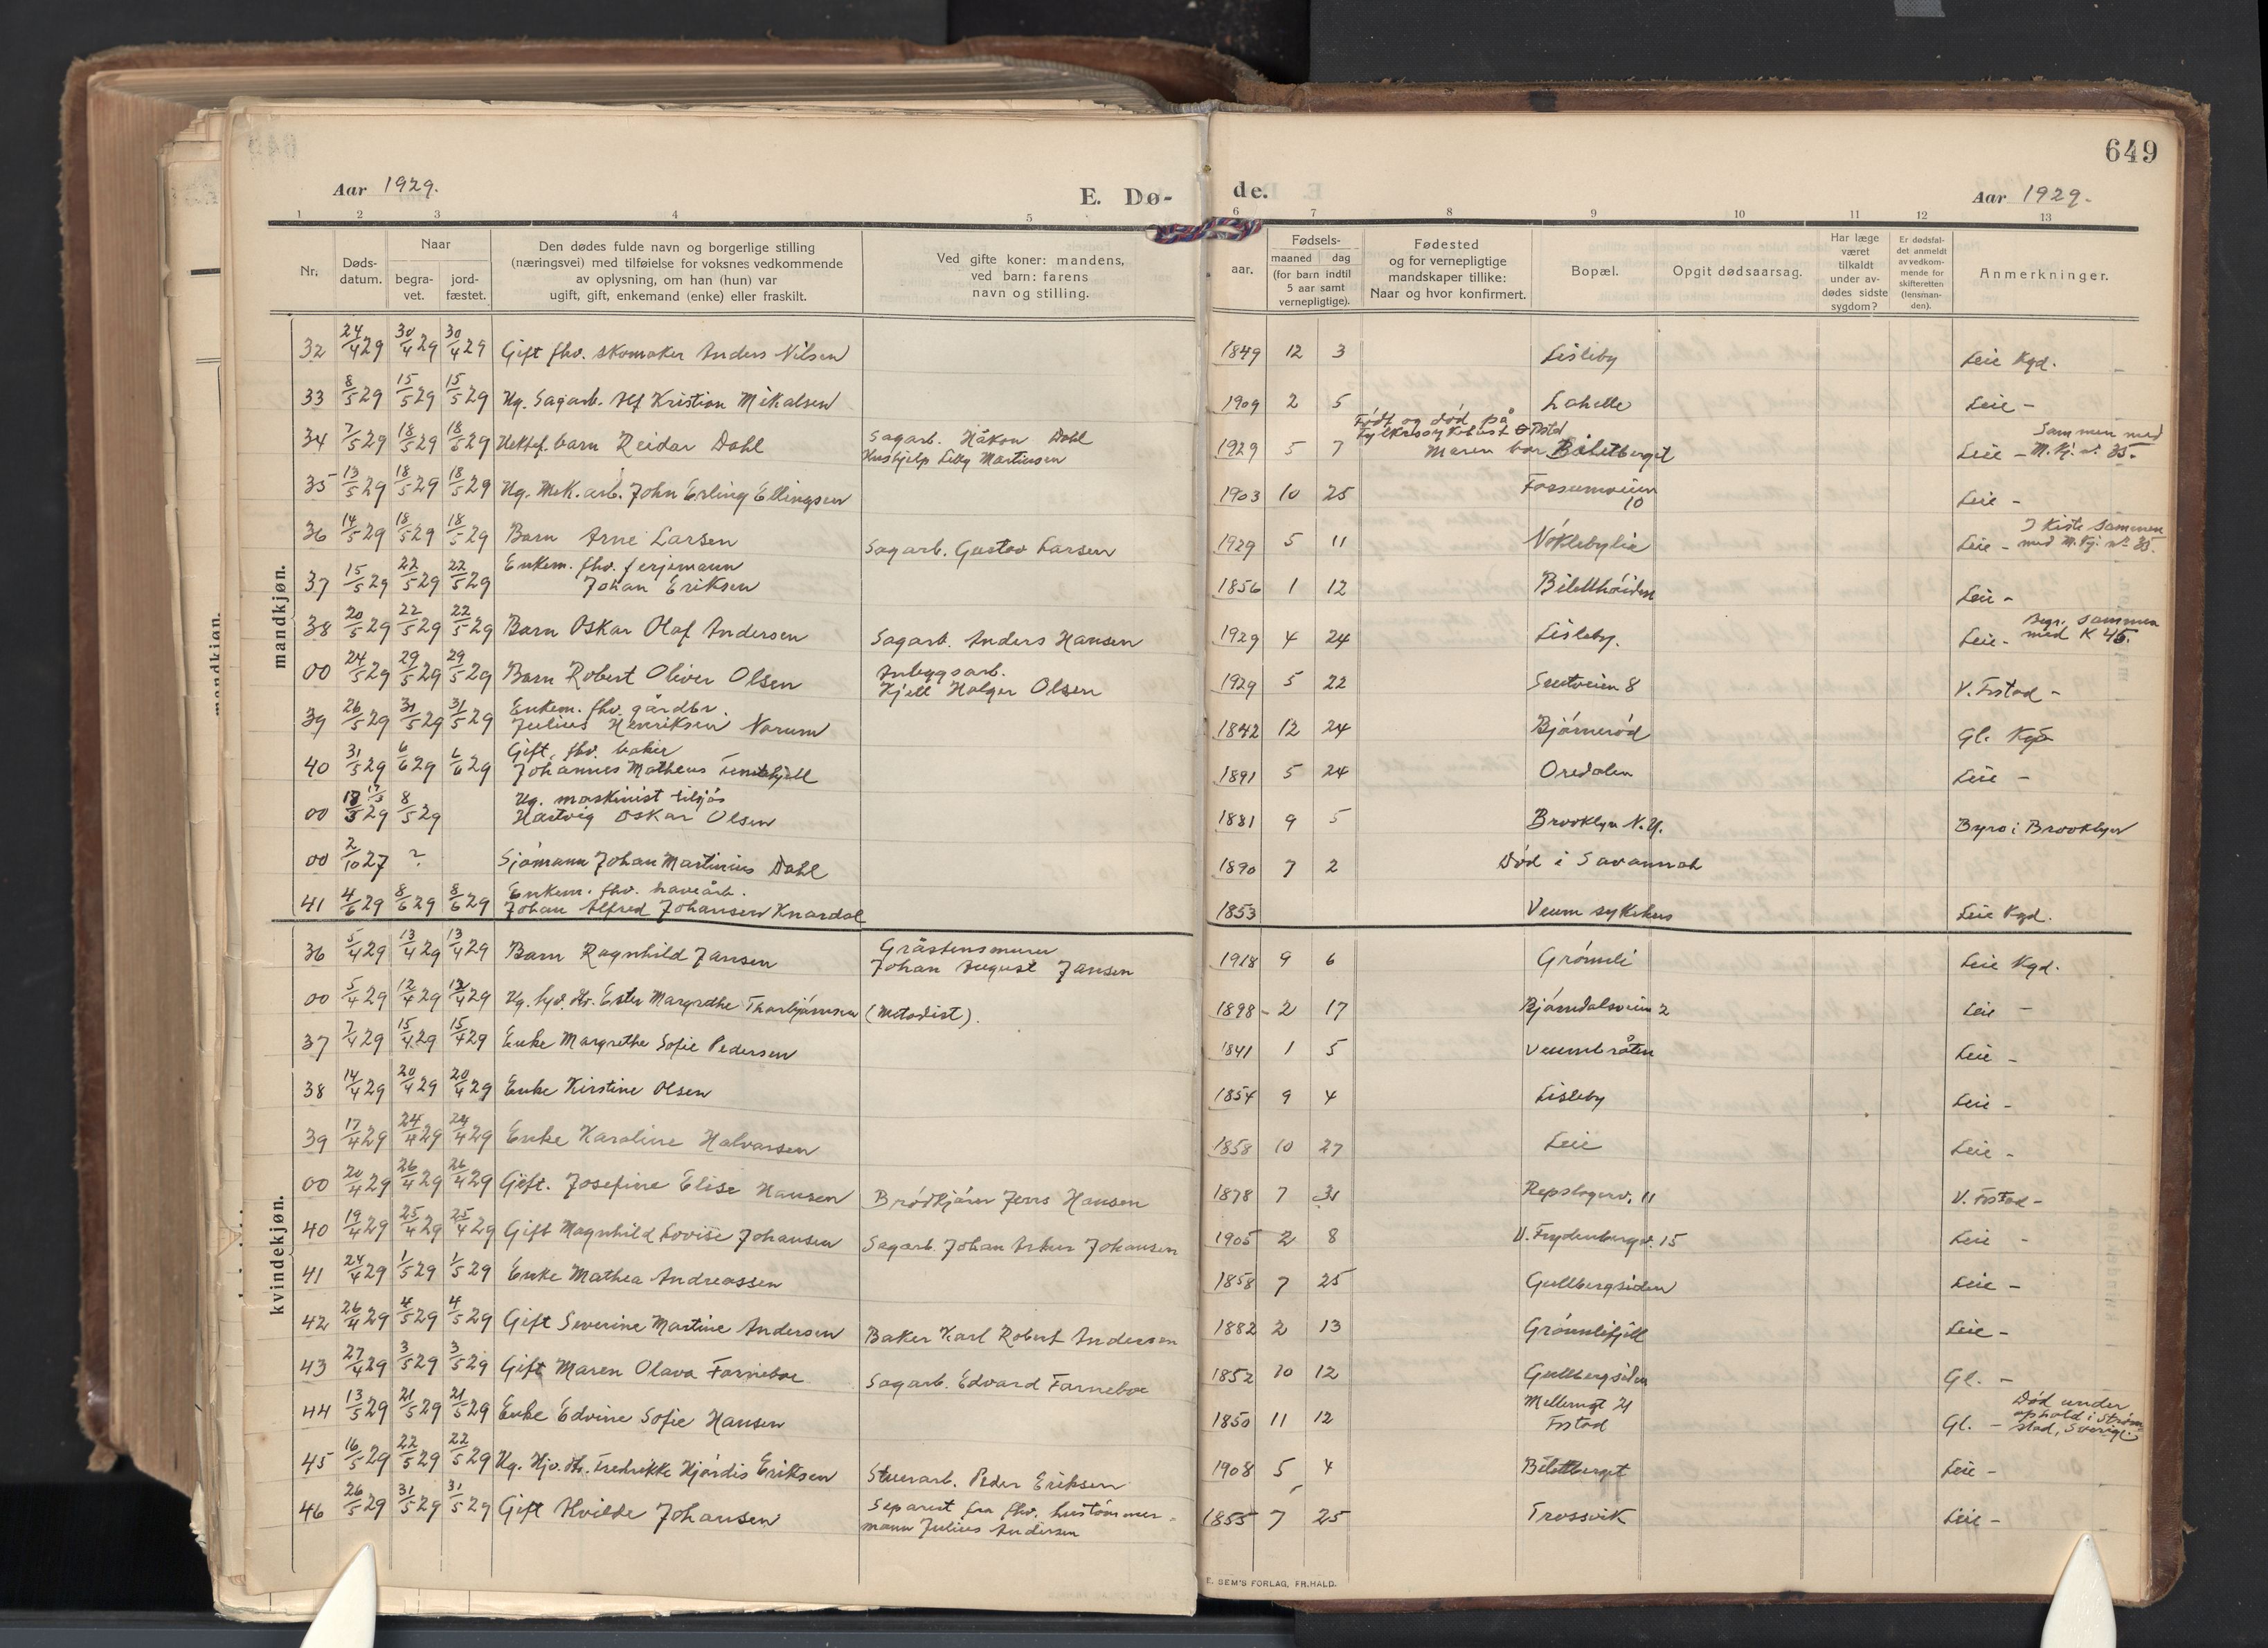 649
Aar 1929.
E. Dø-
de.
Aar 1929.
1 2 3 4 5 6 7 8 9 10 11 12 13
Nr.
Døds-
datum.
Naar
begra-
vet.
jord-
fæstet.
Den dødes fulde navn og borgerlige stilling
(næringsvei) med tilføielse for voksnes vedkommende
av oplysning, om han (hun) var
ugift, gift, enkemand (enke) eller fraskilt.
Ved gifte koner: mandens,
ved barn: farens
navn og stilling.
aar.
Fødsels-
maaned dag
(for barn indtil
5 aar samt
vernepligtige).
Fødested
og for vernepligtige
mandskaper tillike:
Naar og hvor konfirmert.
Bopæl.
Opgit dødsaarsag.
Har læge
været
tilkaldt
under av-
dødes sidste
sygdom?
Er dødsfal-
det anmeldt
av vedkom-
mende for
skifteretten
(lensman-
den).
Anmerkninger.
mandkjøn.
32 24/4 29 30/4 29 30/4 29 Gift fhv. skomaker Anders Nilsen 1849 12 3 Lisleby Leie Kgd.
33 8/5 29 15/5 29 15/5 29 Ug. Sagarb. Alf Kristian Mikalsen 1909 2 5 Lahelle Leie -
34 7/5 29 18/5 29 18/5 29 Uektef. barn Reidar Dahl Sagarb. Håkon Dahl
Hushjelp Lilly Martinsen 1929 5 7 Født og død på
Moren bor Biletberget Leie - Sammen med
M.Kj. nr 35.
35 13/5 29 18/5 29 18/5 29 Ug. Mek. arb. John Erling Ellingsen 1903 10 25 Fossumveien
10 Leie -
36 14/5 29 18/5 29 18/5 29 Barn Arne Larsen Sagarb. Gustav Larsen 1929 5 11 Nøklebylie Leie - I Kiste sammen
med M.Kj. nr 35.
37 15/5 29 22/5 29 22/5 29 Enkem. fhv. ferjemann
Johan Eriksen 1856 1 12 Biletthøiden Leie -
38 20/5 29 22/5 29 22/5 29 Barn Oskar Olaf Andersen Sagarb. Anders Hansen 1929 4 24 Lisleby. Leie - Begr. sammen
med K 45.
00 24/5 29 29/5 29 29/5 29 Barn Robert Oliver Olsen Anleggsarb.
Kjell Holger Olsen 1929 5 22 Seutveien 8 V. Frstad -
39 26/5 29 31/5 29 31/5 29 Enkem. fhv. gårdbr.
Julius Henriksen Norum 1842 12 24 Bjørnerød Gl. Kgd
40 31/5 29 6/6 29 6/6 29 Gift, fhv. baker
Johannes Matheus 1891 5 24 Oredalen Leie -
00 29 8/5 29 Ug. maskinist tilsjøs
Hartvig Oskar Olsen 1881 9 5 Brooklyn N.Y. Byro i Brooklyn
00 2/10 27 ? Sjømann Johan Martinius Dahl 1890 7 2 Død i Savannah
41 4/6 29 8/6 29 8/6 29 Enkem. fhv. havearb.
Johan Alfred Johansen Knardal 1853 Veum sykehus Leie Kgd.
kvindekjøn.
36 5/4 29 13/4 29 13/4 29 Barn Ragnhild Jansen Gråstensmurer
Johan August Jansen 1918 9 6 Grømli Leie Kgd.
00 5/4 29 12/4 29 12/4 29 Ug. hjv. dtr. Ester Margrethe Thorbjørnsen (Metodist). 1898 - 2 17 Bjørndalsveien 2 Leie -
37 7/4 29 15/4 29 15/4 29 Enke Margrethe Sofie Pedersen 1841 1 5 Veumbråten Leie -
38 14/4 29 20/4 29 20/4 29 Enke Kirstine Olsen 1854 9 4 Lisleby Leie -
39 17/4 29 24/4 29 24/4 29 Enke Karoline Halvorsen 1858 10 27 Leie Leie -
00 20/4 29 26/4 29 26/4 29 Gift. Josefine Elise Hansen Brødkjører Jens Hansen 1878 7 31 Repslagerv. 11 V. Frstad -
40 19/4 29 25/4 29 25/4 29 Gift Magnhild Lovise Johansen Sagarb. Johan Artur Johansen 1905 2 8 V. Frydenbergv. 15 Leie -
41 24/4 29 1/5 29 1/5 29 Enke Mathea Andreassen 1858 7 25 Gullbergsiden Leie -
42 26/4 29 4/5 29 4/5 29 Gift Severine Martine Andersen Baker Karl Robert Andersen 1882 2 13 Grømlifjell Leie -
43 27/4 29 3/5 29 3/5 29 Gift Maren Olava Farneboe Sagarb. Edvard Farneboe 1852 10 12 Gullbergsiden Gl. -
44 13/5 29 21/5 29 21/5 29 Enke Edvine Sofie Hansen 1850 11 12 Mellemgt 21
Frstad Gl. - Død under
ophold i Strøm-
stad, Sverige
45 16/5 29 22/5 29 22/5 29 Ug. Hjv. dtr. Fredrikke Hjørdis Eriksen Stuerarb. Peder Eriksen 1908 5 4 Bilettberget Leie -
46 26/5 29 31/5 29 31/5 29 Gift Hvilde Johansen Separert fra fhv. hustømmer-
mann Julius Andersen 1855 7 25 Trosvik Leie -
E. SEM'S FORLAG, FR.HALD.